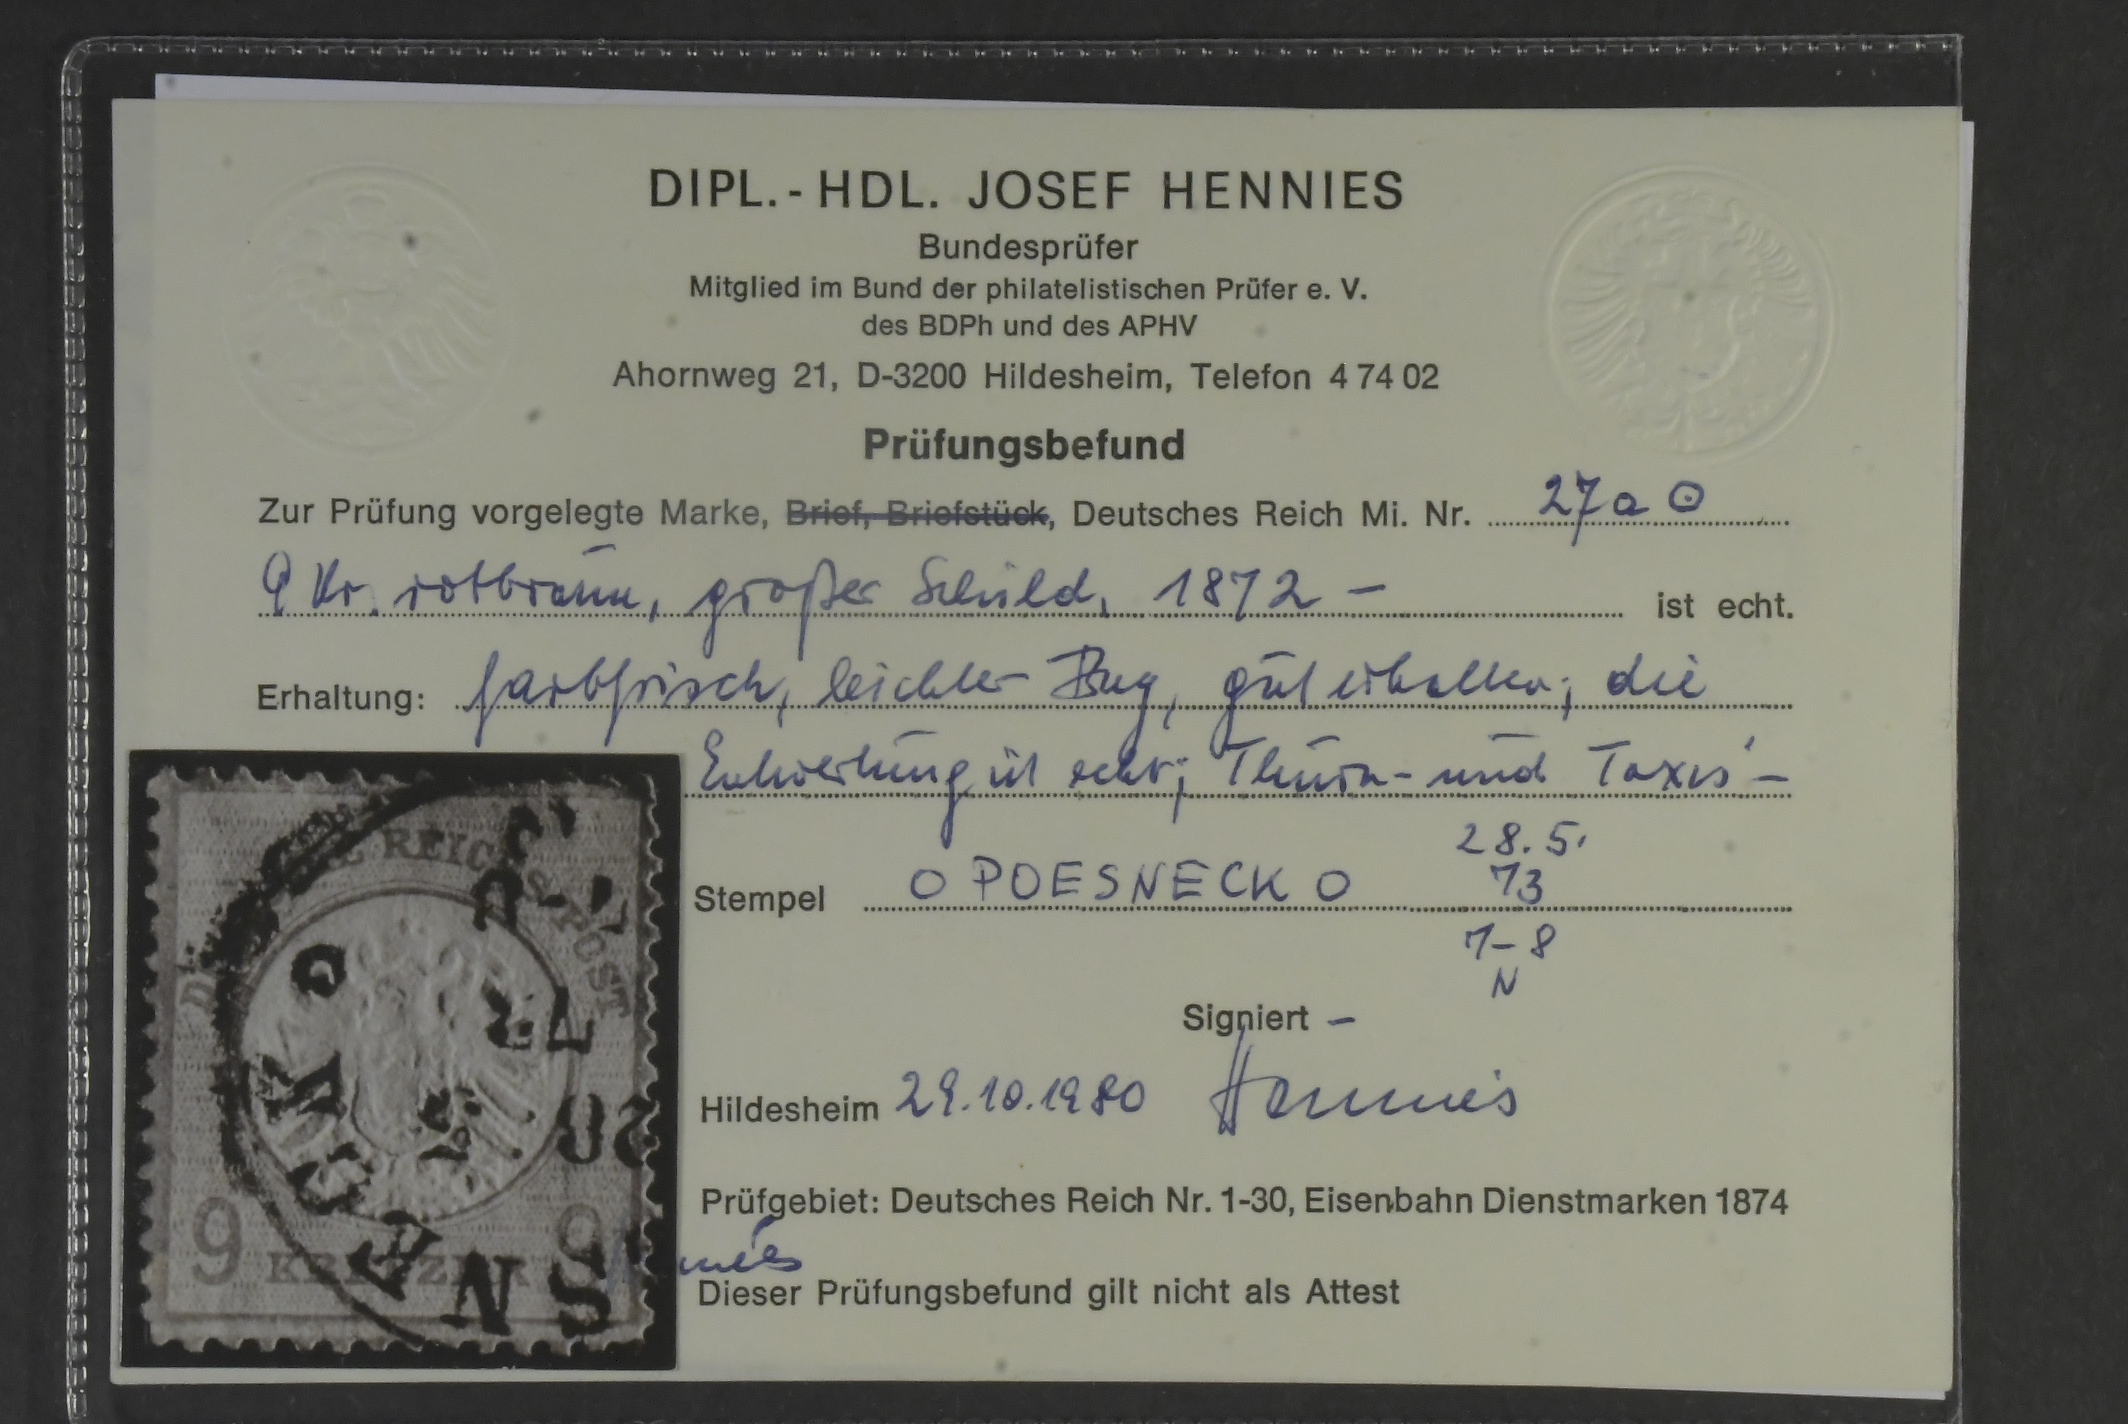 DIPL.-HDL. JOSEF HENNIES
Bundesprüfer
Mitglied im Bund der philatelistischen Prüfer e. V.
des BDPh und des APHV
Ahornweg 21, D-3200 Hildesheim, Telefon 4 74 02
Prüfungsbefund
Zur Prüfung vorgelegte Marke, Brief, Briefstück, Deutsches Reich Mi. Nr. 27a ⊙
9 Kr. rotbraun, großer Schild, 1872 – ist echt.
Erhaltung: farbfrisch, leichter Bug, gut erhalten; die
Entwertung ist echt; Thurn- und Taxis'–
28.5.
Stempel O POESNECK O 73
7–8
N
Signiert –
Hildesheim 29.10.1980 Hennies
Prüfgebiet: Deutsches Reich Nr. 1-30, Eisenbahn Dienstmarken 1874
Dieser Prüfungsbefund gilt nicht als Attest
REICHS-POST
9 KREUZER 9